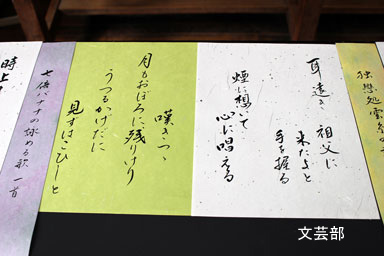 独想処
耳遠き 祖父に
来たよと
手を握る
煙に想いて
心に唱える
嘆きつゝ
月もおぼろに残りけり
うつるかげだに
見すはこひしと
七倍
の詠める歌 一首
時
文芸部